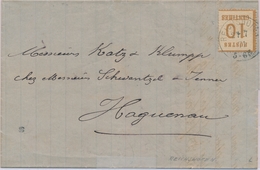 Messieurs Katz & Klumpp
chez Messieurs Schwentzel & Jenner
Haguenau
POSTES
10
CENTIMES